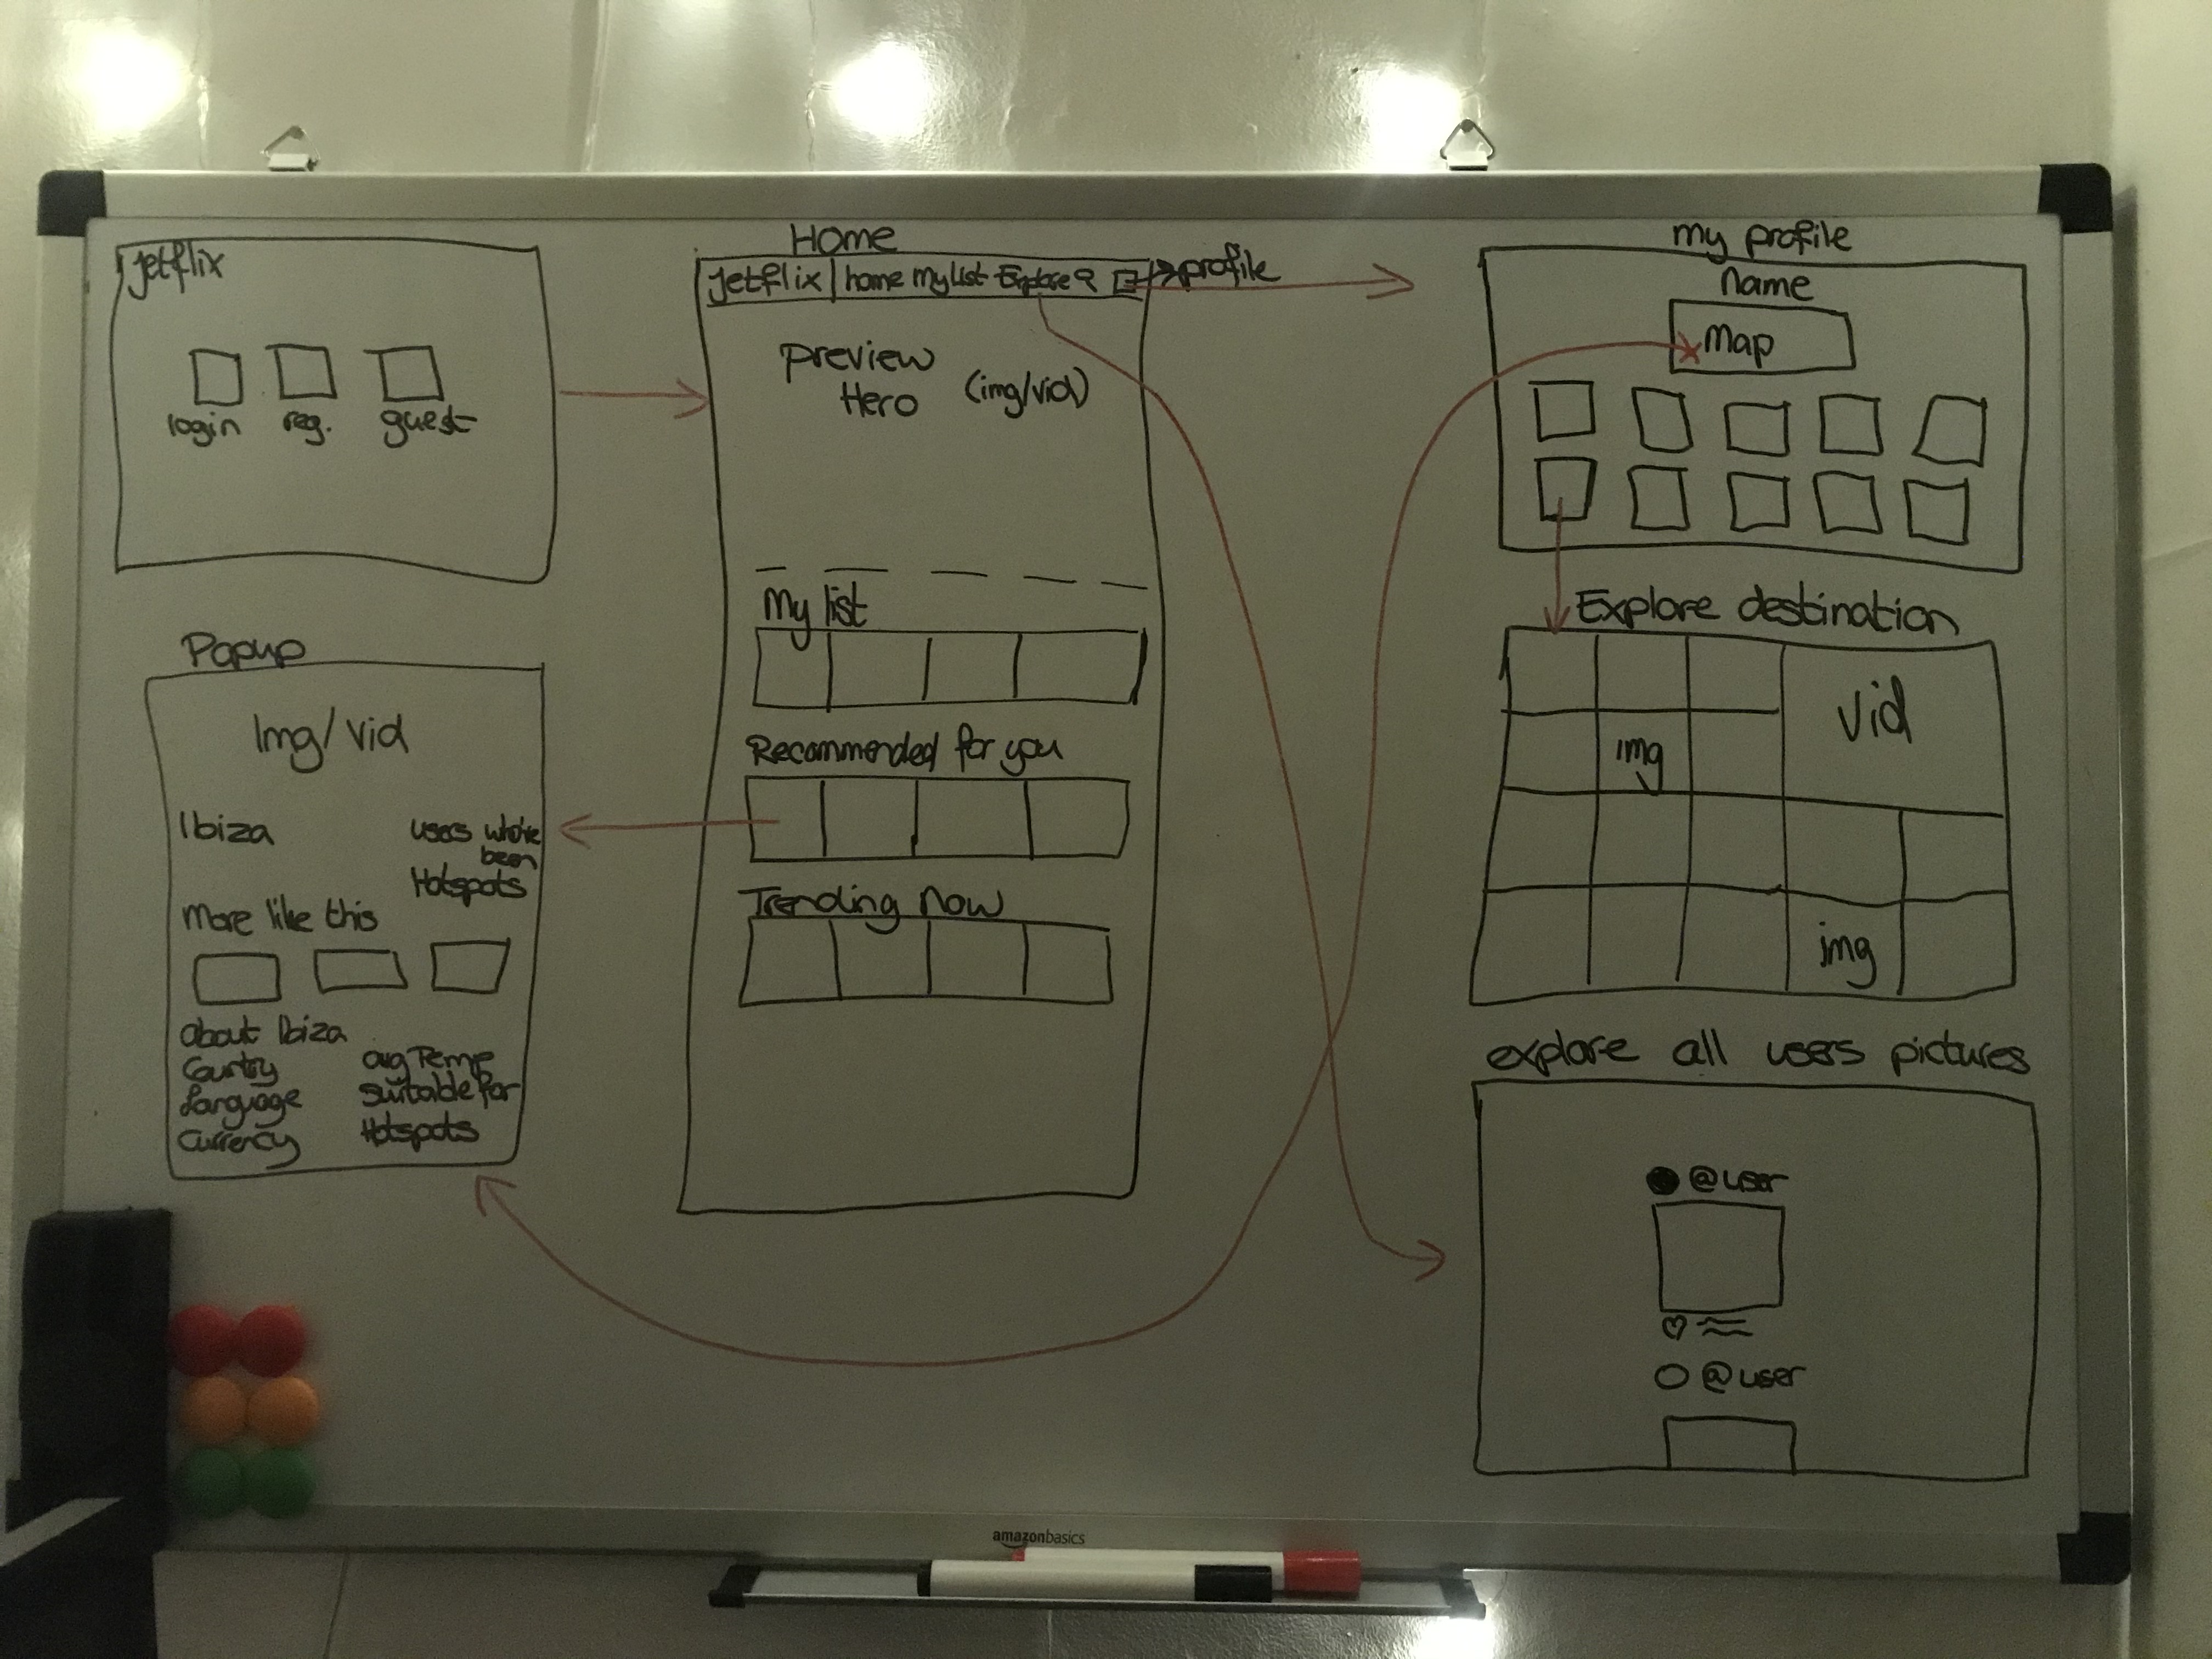 Jetflix
login reg. guest
Popup
Img/Vid
Ibiza
users who've
been
Hotspots
More like this
about Ibiza
Country
Language
Currency
avg Temp
suitable for
Hotspots
Home
Jetflix | home My List Explore
profile
preview
Hero (img/vid)
My list
Recommended for you
Trending Now
my profile
Name
Map
Explore destination
vid
img
img
explore all users pictures
@user
@user
amazonbasics